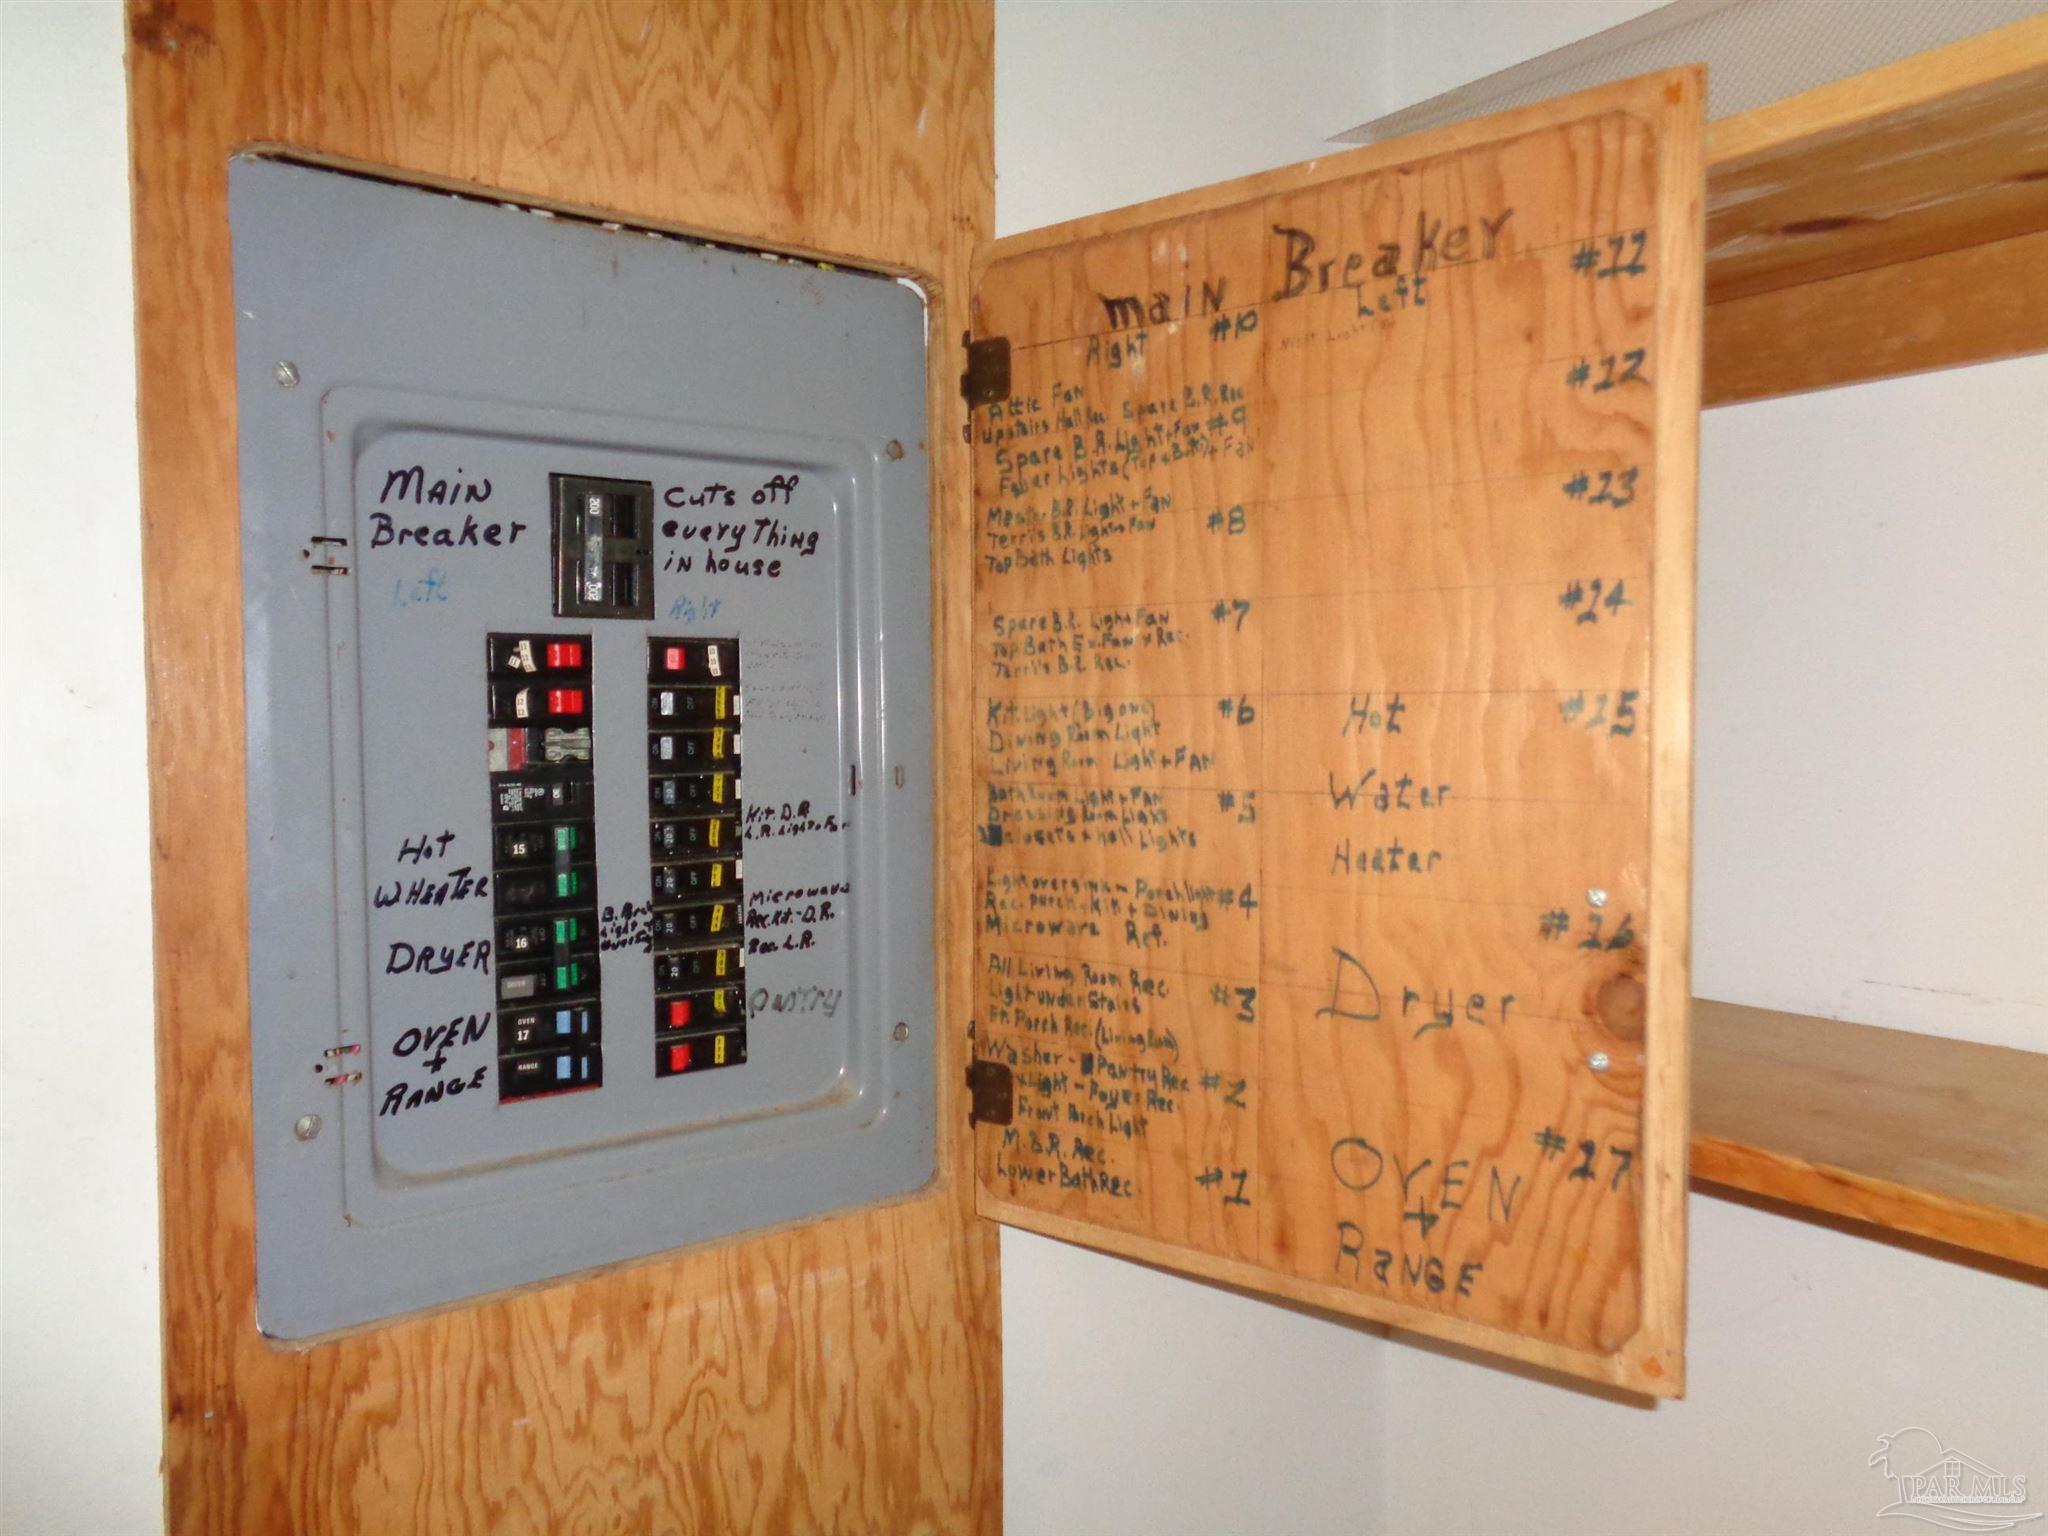 MAIN
Breaker
Cuts off
everything
in house
Left
Right
200
200
Hot
W HEATER
DRYER
OVEN
+
RANGE
15
16
DRYER
OVEN
17
RANGE
ON OFF
ON OFF
ON 20 OFF
ON 20 OFF
ON 20 OFF
ON 20 OFF
ON 20 OFF
Kit. D.R.
L.R. Light + Fan
Microwave
Rec. Kit. - D.R.
Rec. L.R.
PANTRY
Main Breaker
Right
#10
Attic Fan
Upstairs Hall Rec. Spare B.R. Rec
#9
Spare B.R. Light + Fan
Foyer Lights (Top & Bott) + Fan
Master B.R. Light + Fan
#8
Terri's B.R. Light + Fan
Top Bath Lights
Spare B.R. Light + Fan
#7
Top Bath Ex. Fan + Rec.
Terri's B.R. Rec.
Kit. Light (Big one)
#6
Dining Room Light
Living Room Light + FAN
Bath Room Light + FAN
#5
Dressing Room Light
closets + hall Lights
Light over sink - Porch light
#4
Rec. Porch, Kit + Dining
Microwave Ref.
All Living Room Rec.
#3
Light under Stairs
Ft. Porch Rec. (Living Room)
Washer - Pantry Rec
#2
Light - Foyer Rec.
Front Porch Light
M.B.R. Rec.
#1
Lower Bath Rec.
Left
#11
Night Light
#12
#13
#14
Hot
#15
Water
Heater
#16
Dryer
#17
OVEN
+
RANGE
PAR MLS